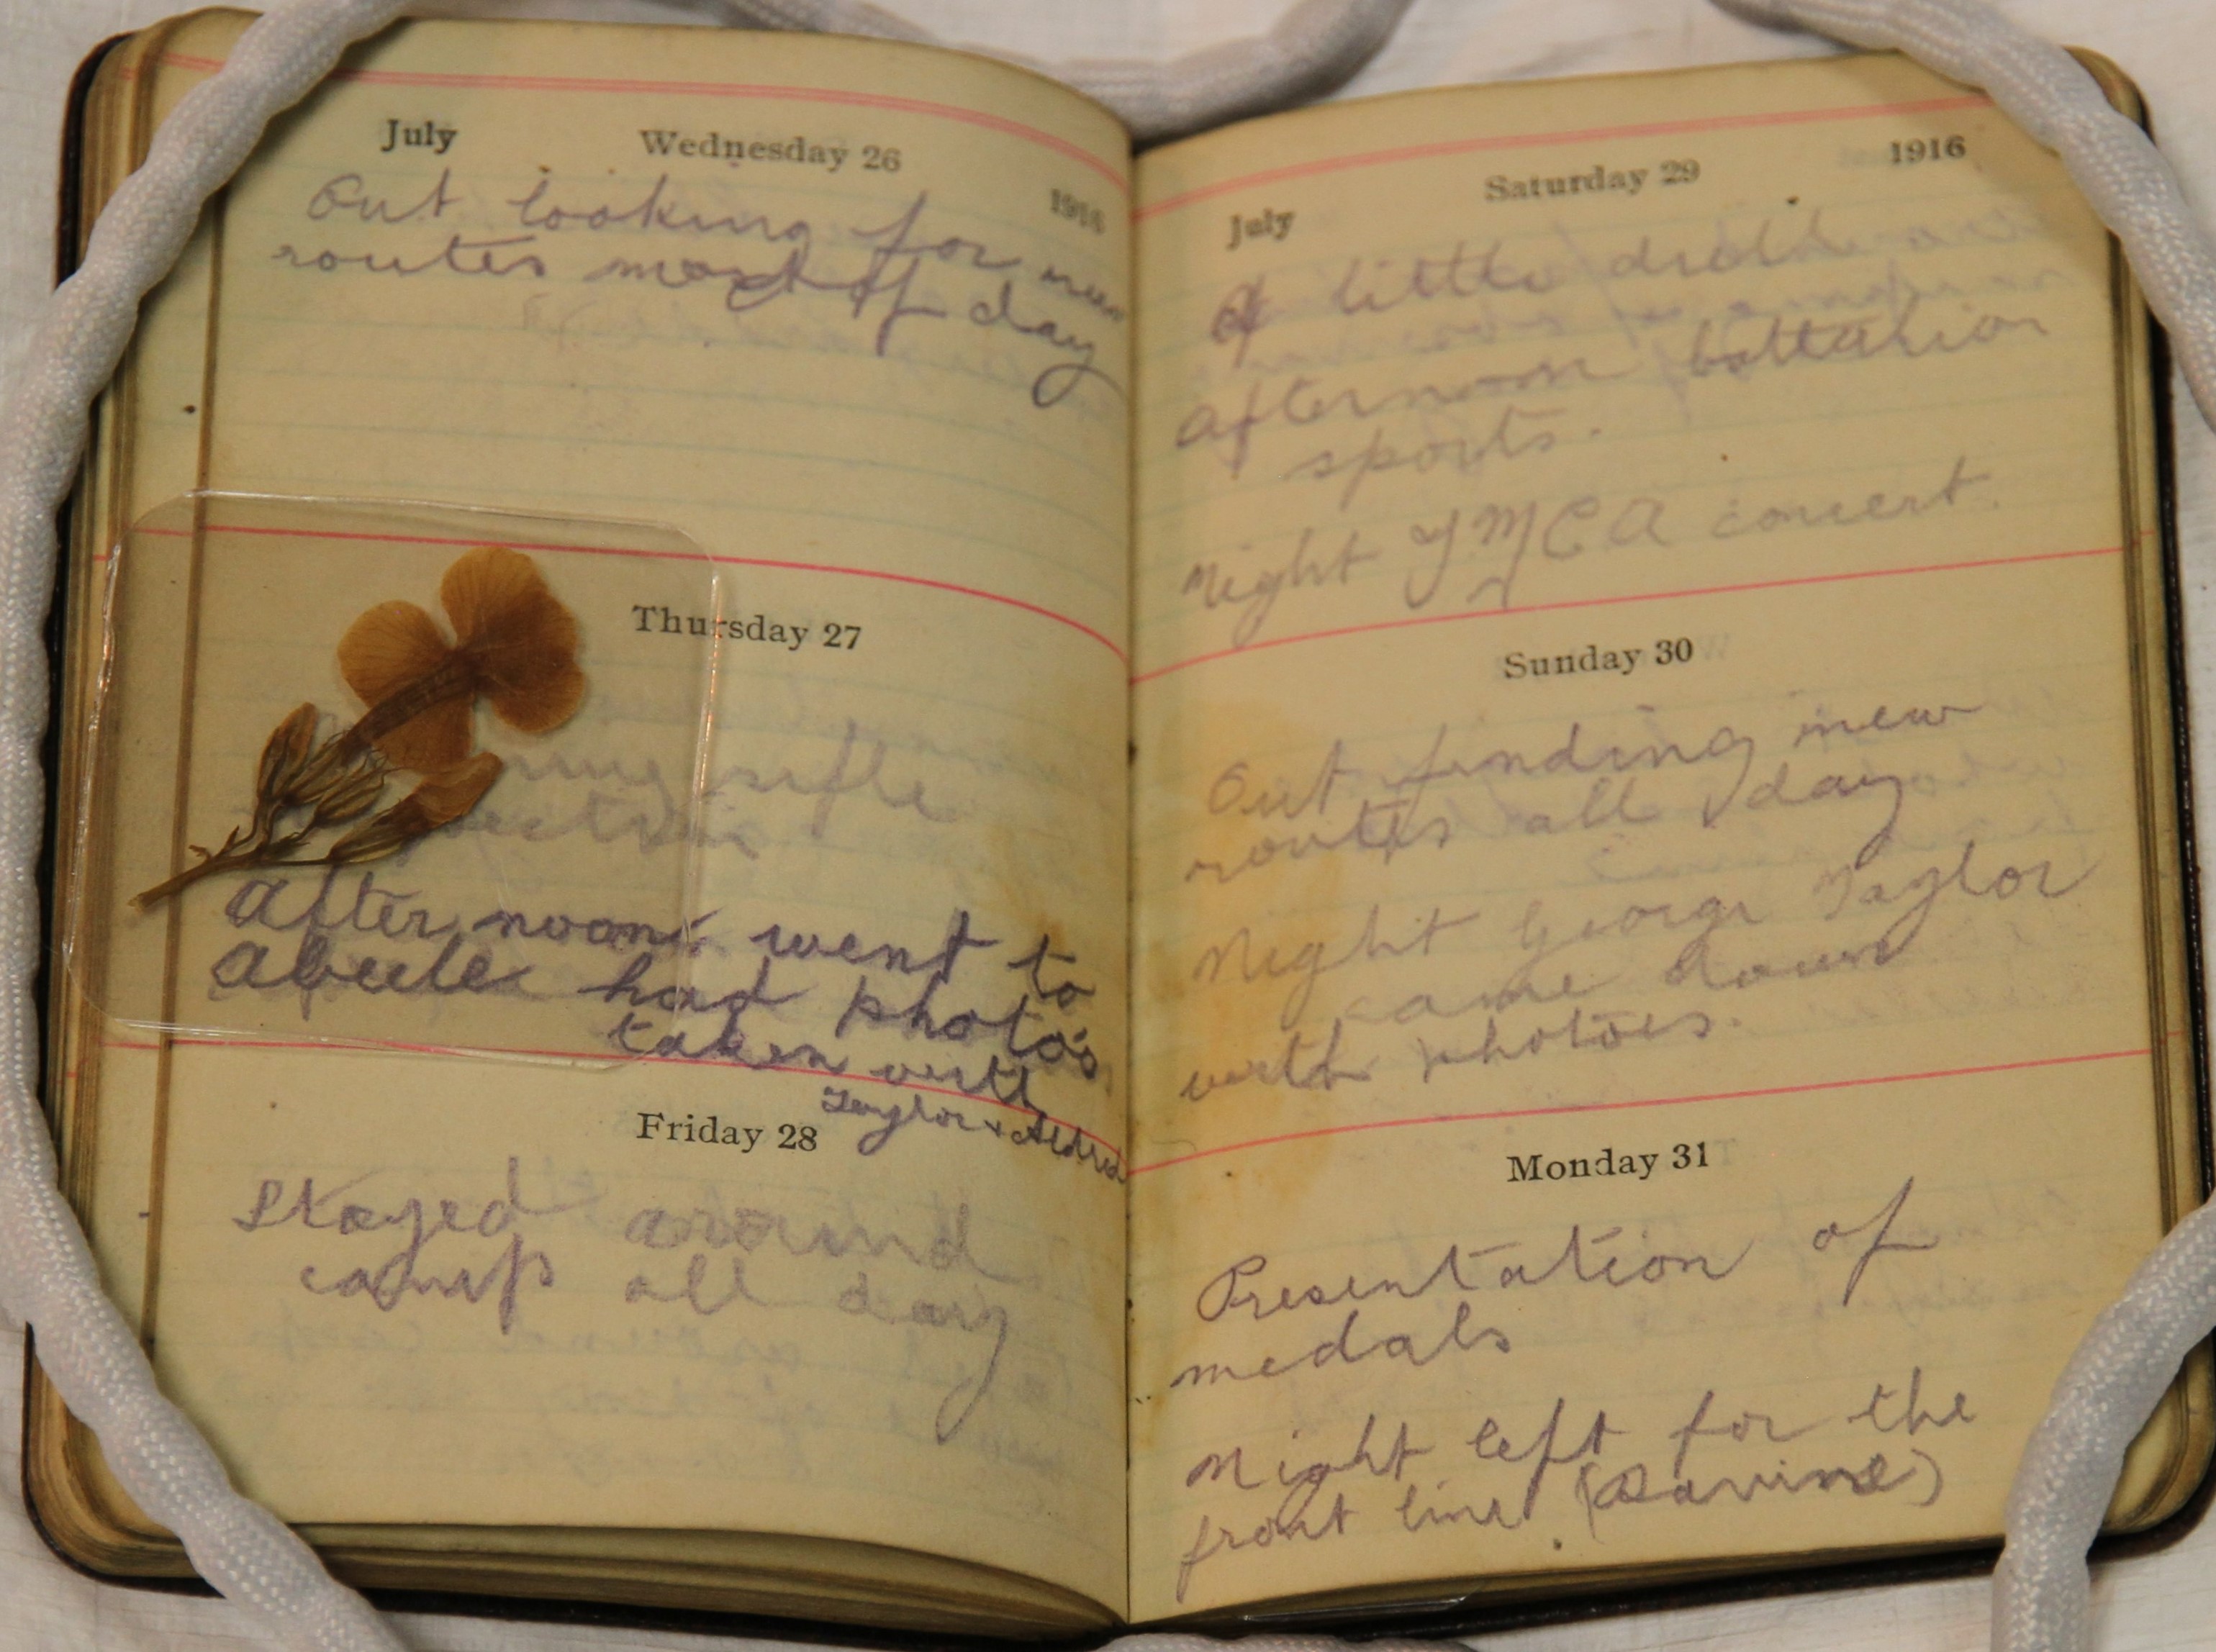 July Wednesday 26 1916
Out looking for new
routes most of day
Thursday 27
rifle
After noon went to
Abeele had photo's
taken with
Taylor + Aldred
Friday 28
Stayed around
camp all day
July Saturday 29 1916
A little drill
afternoon battalion
sports.
Night YMCA concert.
Sunday 30
Out finding new
routes all day
Night George Taylor
came down
with photoes.
Monday 31
Presentation of
medals
Night left for the
front line (Ravine)